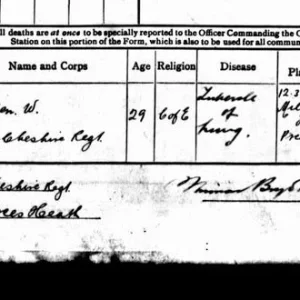 ll deaths are at once to be specially reported to the Officer Commanding the O
Station on this portion of the Form, which is also to be used for all commu
Name and Corps
Age
Religion
Disease
Pla
en W.
29
C of E
Tubercle
of
Lung.
12.3
Mil
Pre
Cheshire Regt
eshire Regt
ees Heath